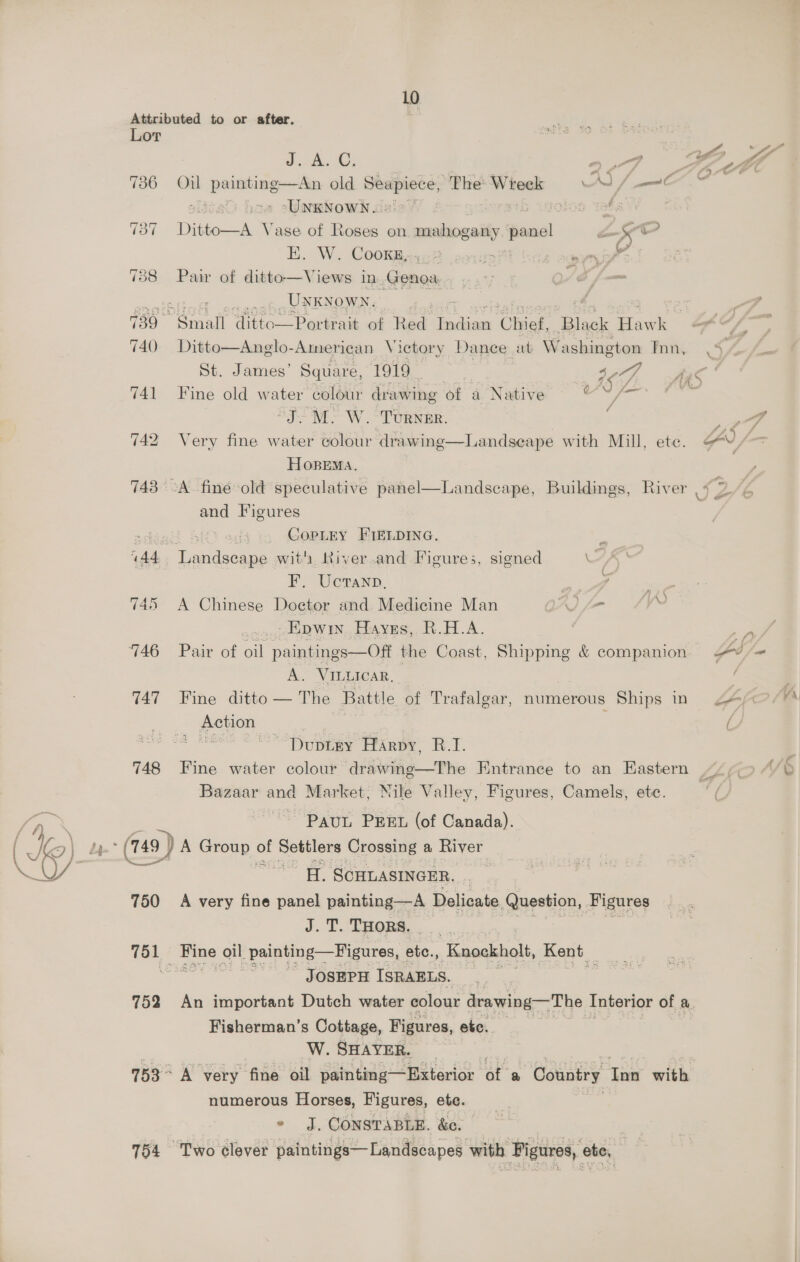 10
Attributed to or after.
Lot
J. A. C.
736 Oil painting—An old Seapiece, The Wreck
Unknown.
737 Ditto—A Vase of Roses on mahogany panel
E. W. Cooke,
738 Pair of ditto—Views in Genoa
Unknown.
739 Small ditto—Portrait of Red Indian Chief, Black Hawk
740 Ditto—Anglo-American Victory Dance at Washington Inn,
St. James' Square, 1919
741 Fine old water colour drawing of a Native
J. M. W. Turner.
742 Very fine water colour drawing—Landscape with Mill, etc.
Hobema.
743 A fine old speculative panel—Landscape, Buildings, River
and Figures
Copley Fielding.
744 Landscape with River and Figures, signed
F. Uctand,
745 A Chinese Doctor and Medicine Man
Edwin Hayes, R.H.A.
746 Pair of oil paintings—Off the Coast, Shipping & companion
A. Villicar,
747 Fine ditto — The Battle of Trafalgar, numerous Ships in
Action
Dudley Hardy, R.I.
748 Fine water colour drawing—The Entrance to an Eastern
Bazaar and Market, Nile Valley, Figures, Camels, etc.
Paul Peel (of Canada).
749 A Group of Settlers Crossing a River
H. Schlasinger.
750 A very fine panel painting—A Delicate Question, Figures
J. T. Thors.
751 Fine oil painting—Figures, etc., Knockholt, Kent
Joseph Israels.
752 An important Dutch water colour drawing—The Interior of a
Fisherman's Cottage, Figures, etc.
W. Shayer.
753 A very fine oil painting—Exterior of a Country Inn with
numerous Horses, Figures, etc.
J. Constable. &c.
754 Two clever paintings—Landscapes with Figures, etc,